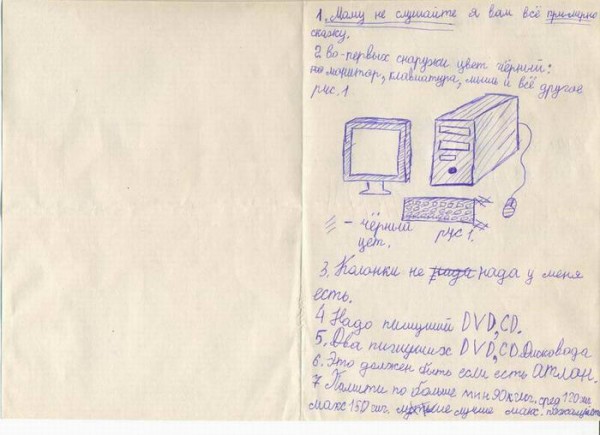 1. Маму не слушайте я вам всё примерно
скажу.
2 во-первых снаружи цвет чёрный:
монитор, клавиатура, мыш и всё другое
рис. 1
- чёрный
цет.
рус 1.
3. Колонки не нада у меня
есть.
4 Надо пишущий DVD, CD.
5. Два пишущих DVD, CD. Дисковода
6. Это должен бить если есть АТЛОН.
7 Памити по больше мин 90 гиг. сред 120 гиг
макс 150 гиг. лучше макс. пожалуйста